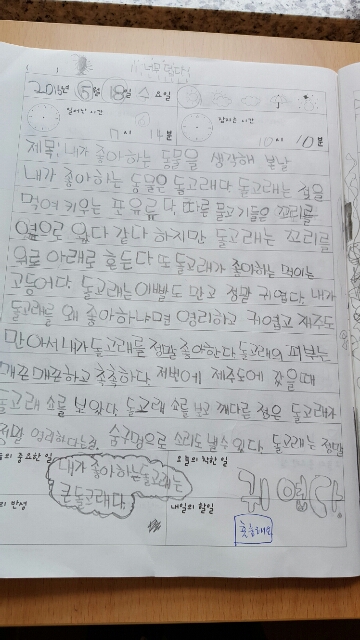 너무 덥다!
2016년 5월 18일 수요일
일어난 시간
잠자는 시간
7시 14분
10시 10분
제목: 내가 좋아하는 동물을 생각해 본날
내가 좋아하는 동물은 돌고래다 돌고래는 젖을
먹여 키우는 포유류다. 따른 물고기들은 꼬리를
옆으로 왔다 갔다 하지만 돌고래는 꼬리를
위로 아래로 흔든다 또 돌고래가 좋아하는 먹이는
고등어다. 돌고래는 이빨도 많고 정말 귀엽다. 내가
돌고래를 왜 좋아하냐면 영리하고 귀엽고 재주도
많아서 내가 돌고래를 정말 좋아한다. 돌고래의 피부는
매끈매끈하고 촉촉하다. 저번에 제주도에 갔을때
돌고래 쇼를 보았다. 돌고래 쇼를 보고 깨다른 점은 돌고래가
정말 영리하다는점. 숨구멍으로 소리도 낼수 있다. 돌고래는 정말
늘의 중요한 일
오늘의 착한 일
내가 좋아하는 돌고래는
큰돌고래다.
귀엽다.
의 반성
내일의 할일